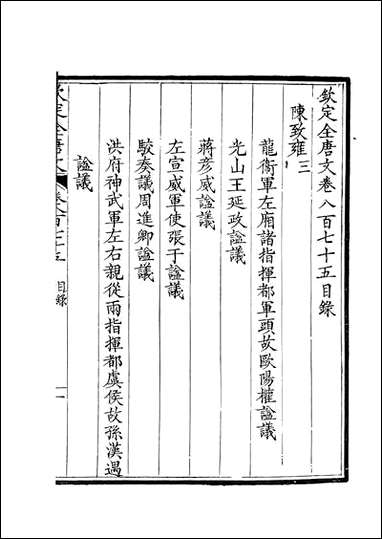 欽定全唐文卷八百七十五目錄
陳致雍三
龍衛軍左廂諸指揮都軍頭故歐陽權諡議
光山王延政諡議
蔣彥威諡議
左宣威軍使張于諡議
駮奏議周進卿諡議
洪府神武軍左右親從兩指揮都虞侯故孫漢遇
諡議
目錄
一